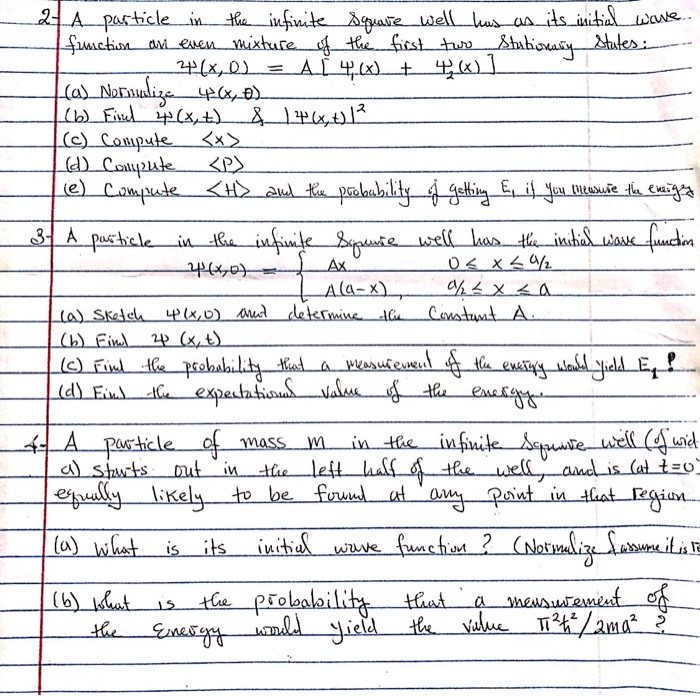 2- A particle in the infinite square well has as its initial wave
function an even mixture of the first two Stationary States:
Ψ(x, 0) = A [ Ψ₁(x) + Ψ₂(x) ]
(a) Normalize Ψ(x, 0)
(b) Find Ψ(x,t) & |Ψ(x,t)|²
(c) Compute <x>
(d) Compute <P>
(e) Compute <H> and the probability of getting E₁ if you measure the energy
3- A particle in the infinite Square well has the initial wave function
Ψ(x,0) = { Ax 0 ≤ x ≤ a/2
A(a-x), a/2 ≤ x ≤ a
(a) Sketch Ψ(x,0) and determine the Constant A.
(b) Find Ψ (x,t)
(c) Find the probability that a measurement of the energy would yield E₁ ?
(d) Find the expectational value of the energy.
4- A particle of mass m in the infinite Square well (of wid
a) starts out in the left half of the well, and is (at t=0)
equally likely to be found at any point in that region
(a) What is its initial wave function ? (Normalize & assume it is re
(b) What is the probability that a measurement of
the Energy would yield the value π²ħ²/2ma² ?